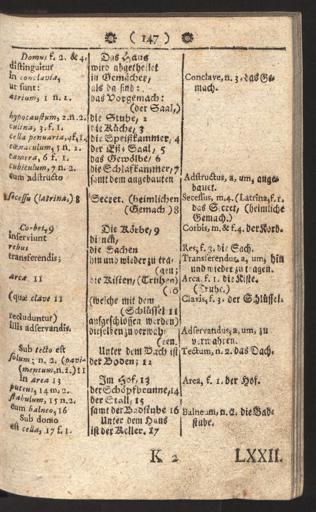 ( 147 )
Domus f. 2. & 4.
distinguitur
in conclavia,
ut sunt:
atrium, 1 n. 1.
hypocaustum, 2.n.2.
culina, 3. f. 1.
cella penuaria, 4f.1.
cœnaculum, 5 n. 2.
camera, 6 f. 1.
cubiculum, 7 n. 2.
cum adstructo
secessu (latrina,) 8
Corbes, 9
inserviunt
rebus
transferendis;
arcæ 11
(quæ clave 11
recluduntur)
illis adservandis.
Sub tecto est
solum; n. 2. (pavi-
mentum, n. 2.) 11
In area 13
puteus, 14 m. 2.
stabulum, 15 n. 2.
cum balneo, 16
Sub domo
est cella, 17 f. 1.
Das Haus
wird abgetheilet
in Gemächer,
als da sind:
das Vorgemach:
(der Saal,)
die Stube, 2
die Küche, 3
die Speißkammer, 4
der Eß-Saal, 5
das Gewölbe, 6
die Schlafkammer, 7
samt dem angebauten
Secret. (heimlichen
Gemach.) 8
Die Körbe, 9
dienen,
die Sachen
hin und wieder zu tra-
gen;
die Kisten, (Truhen)
(10
(welche mit dem
(Schlüssel 11
aufgeschlossen werden)
dieselben zu verwah-
ren.
Unter dem Dach ist
der Boden; 12
Im Hof, 13
der Schöpfbrunne, 14
der Stall, 15
samt der Badstube 16
Unter dem Haus
ist der Keller. 17
Conclave, n. 3. das Ge-
mach.
Adstructus, a, um, ange-
bauet.
Secessus, m. 4. (Latrina, f. 1.
das Secret, (heimliche
Gemach.)
Corbis, m. & f. 3. der Korb.
Res, f. 5. die Sach.
Transferendus, a, um, hin
und wieder zu tragen.
Arca, f. 1. die Kiste.
(Truhe.)
Clavis, f. 3. der Schlüssel.
Adservandus, a, um, zu
verwahren.
Tectum, n. 2. das Dach.
Area, f. 1. der Hof.
Balneum, n. 2. die Bad-
stube.
K 2
LXXII.